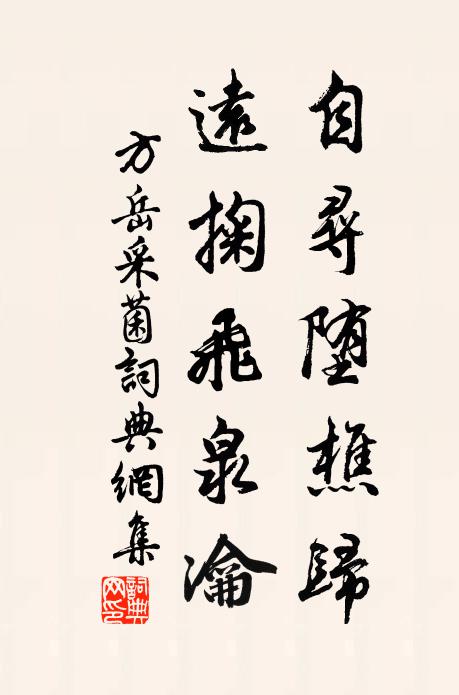 自尋堕樵歸
遠掬飛泉瀹
方岳采菌詞典網集
詞典